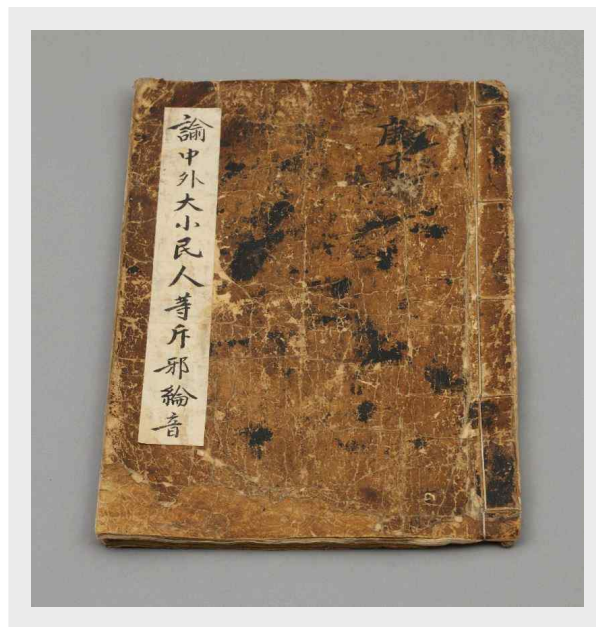 諭中外大小民人等斥邪綸音